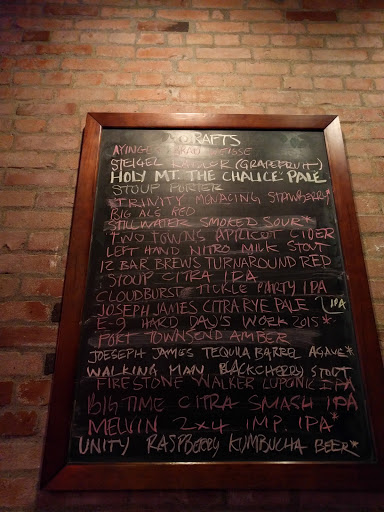 DRAFTS
AYINGER BRAU WEISSE
STEIGEL RADLER (GRAPEFRUIT)
HOLY MT. THE CHALICE PALE
STOUP PORTER
TRINITY MENACING STRAWBERRY*
BIG ALS RED
STILLWATER SMOKED SOUR*
TWO TOWNS APRICOT CIDER
LEFT HAND NITRO MILK STOUT
12 BAR BREWS TURNAROUND RED
STOUP CITRA IPA
CLOUDBURST TICKLE PARTY IPA
JOSEPH JAMES CITRA RYE PALE IPA
E-9 HARD DAY'S WORK 2015*
PORT TOWNSEND AMBER
JOESEPH JAMES TEQUILA BARREL AGAVE*
WALKING MAN BLACKCHERRY STOUT
FIRESTONE WALKER LUPONIC IPA
BIG TIME CITRA SMASH IPA
MELVIN 2X4 IMP. IPA*
UNITY RASPBERRY KUMBUCHA BEER*